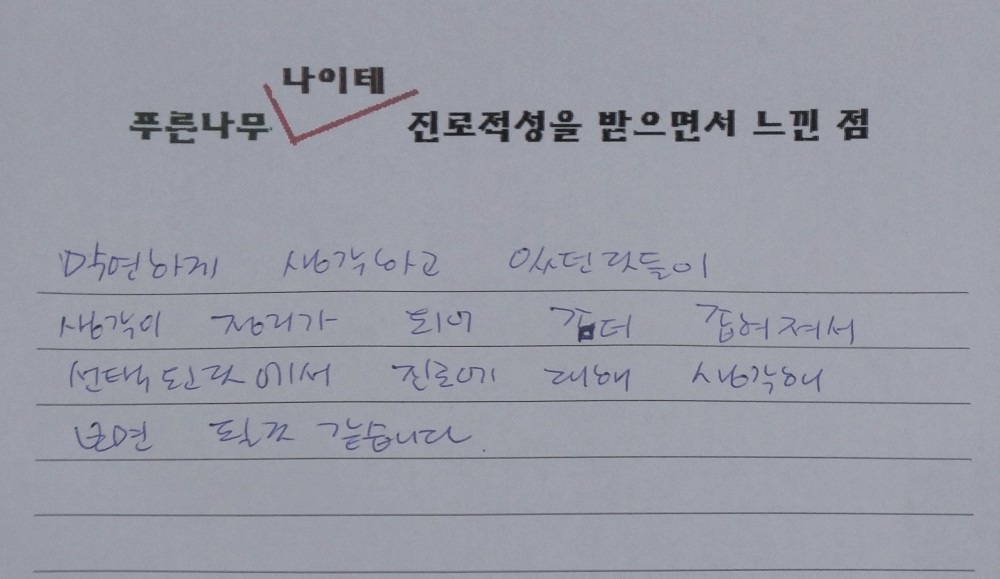 나이테
푸른나무 진로적성을 받으면서 느낀 점
막연하게 생각하고 있던과들이
생각이 정리가 되어 좀더 좁혀져서
선택된과에서 진로에 대해 생각해
보면 될것 같습니다.